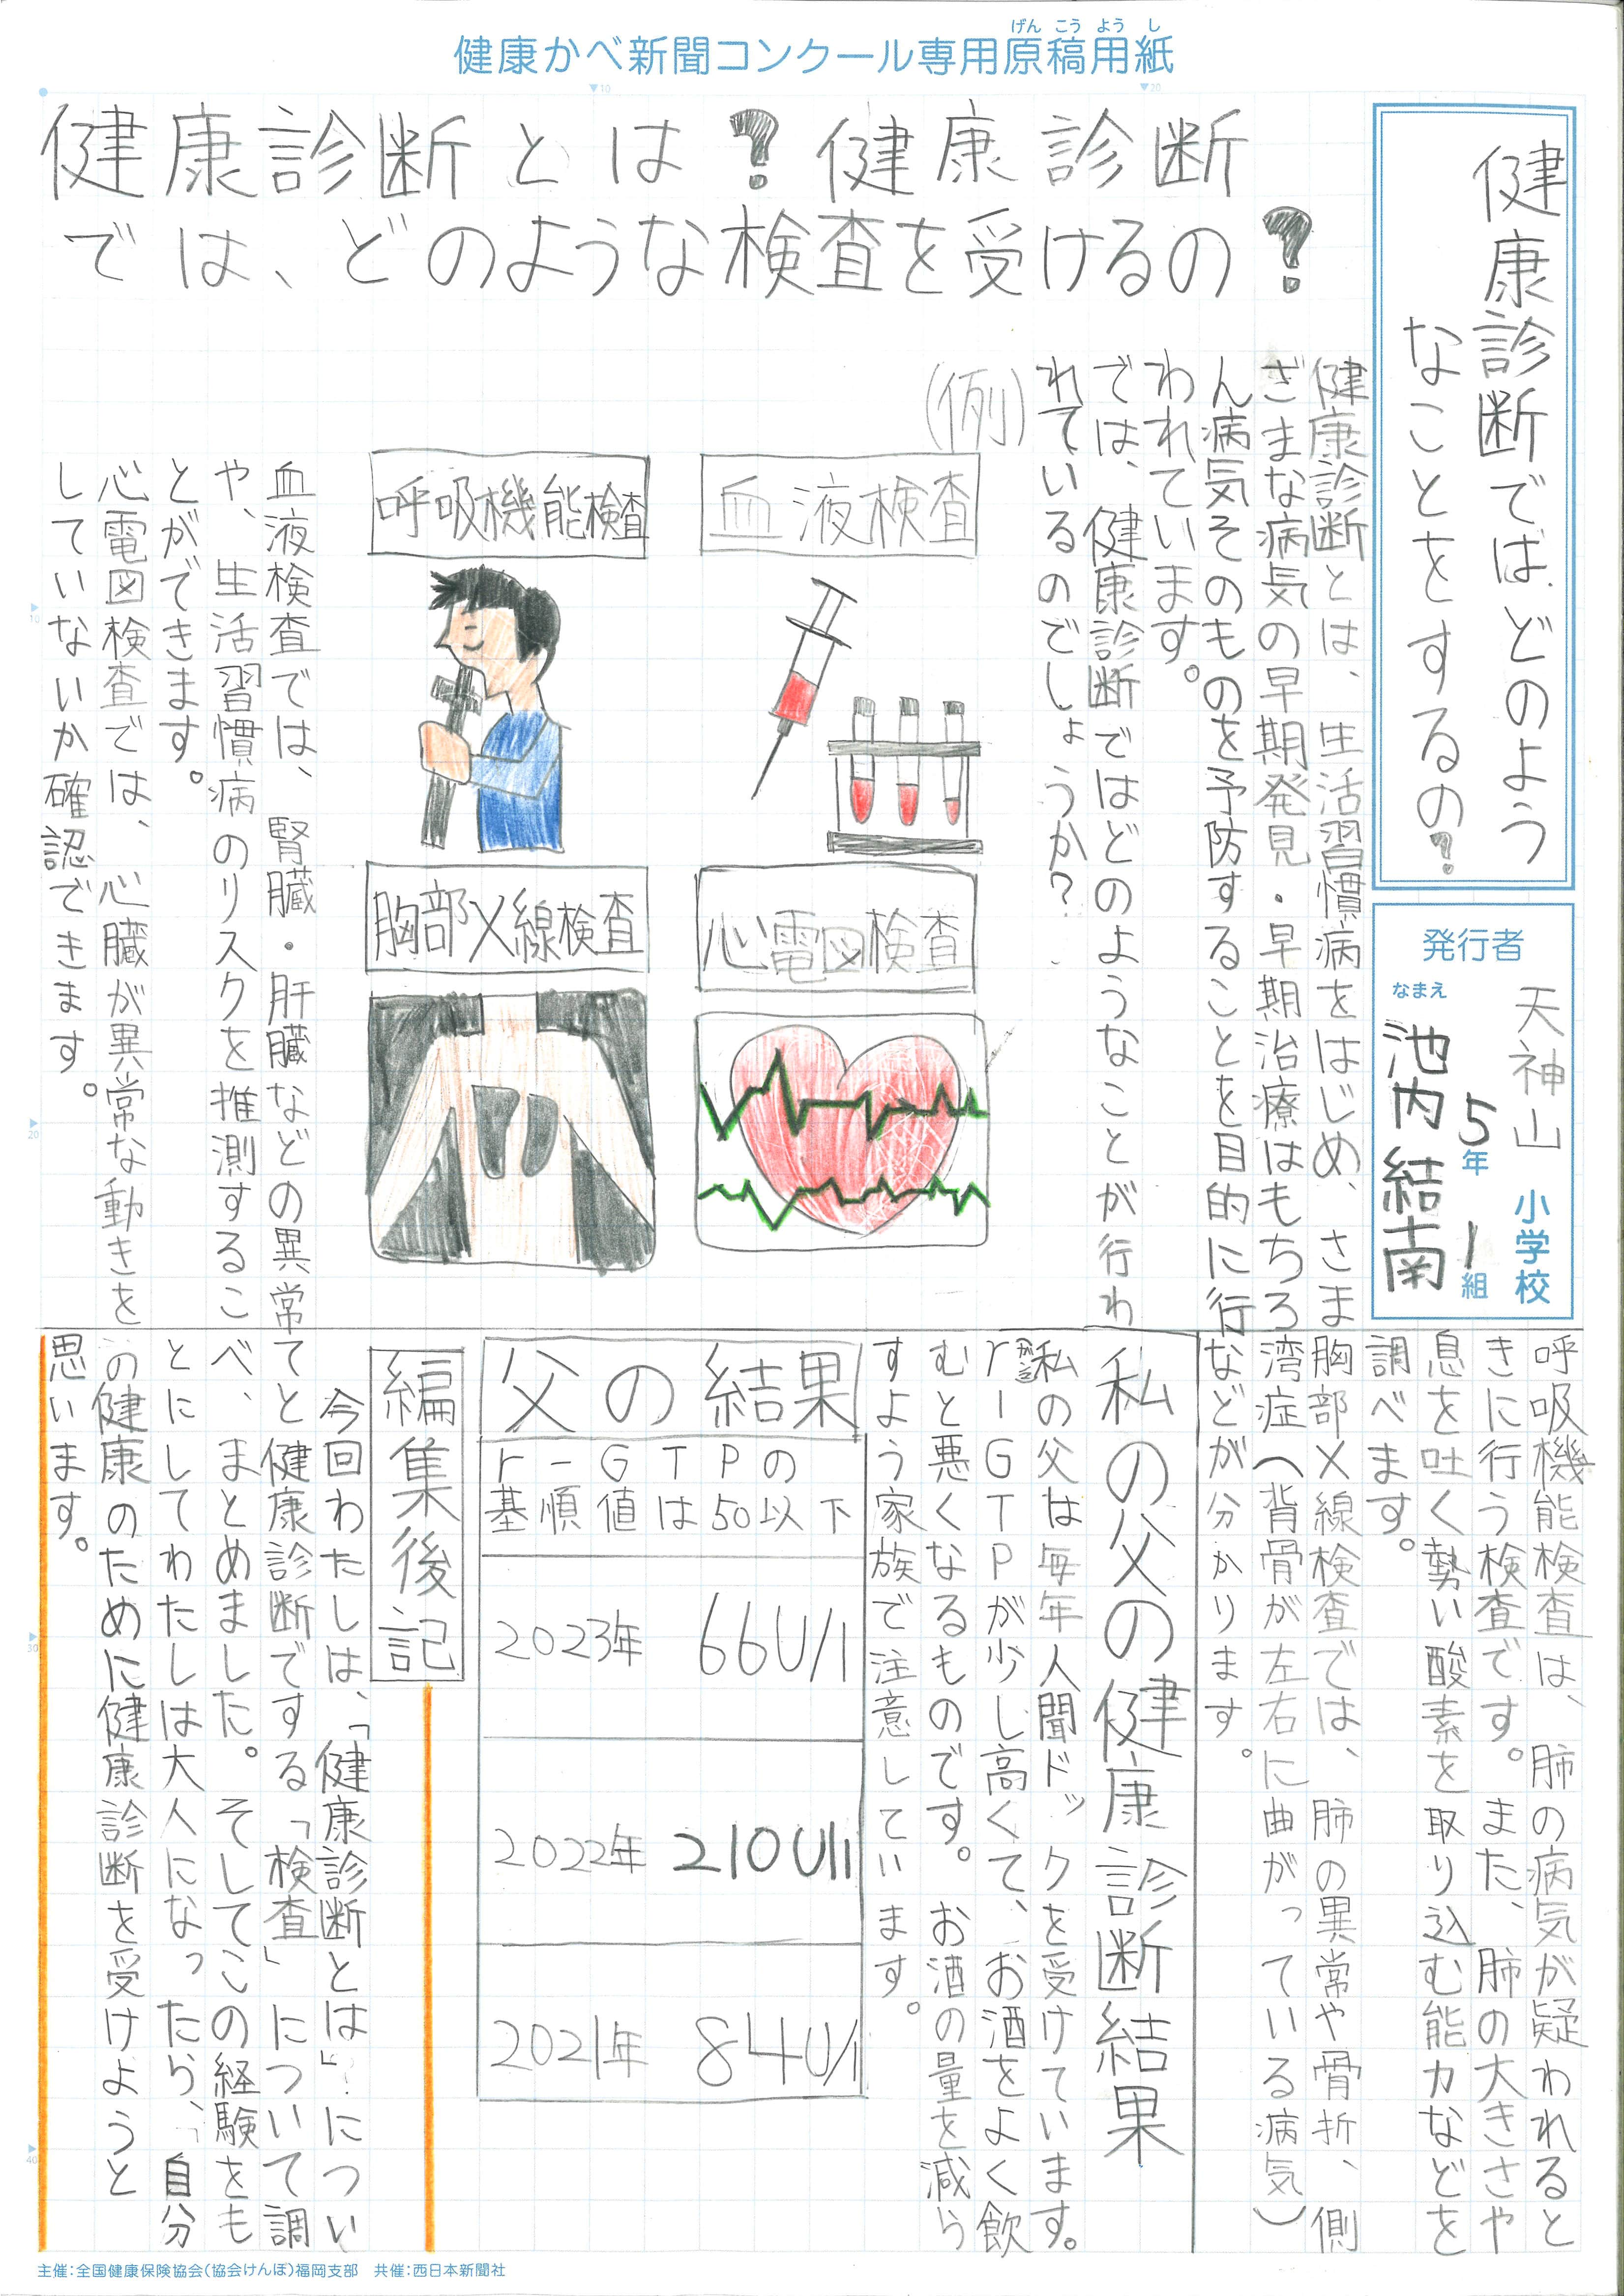 げんこうようし
健康かべ新聞コンクール専用原稿用紙
健康診断では、どのよう
なことをするの?
発行者
天神山 小学校
5年 1組
なまえ
池内結南
健康診断とは?健康診断
では、どのような検査を受けるの?
健康診断とは、生活習慣病をはじめ、さま
ざまな病気の早期発見・早期治療はもちろ
ん病気そのものを予防することを目的に行
われています。
では、健康診断ではどのようなことが行わ
れているのでしょうか?
(例)
血液検査
呼吸機能検査
心電図検査
胸部X線検査
血液検査では、腎臓・肝臓などの異常
や、生活習慣病のリスクを推測するこ
とができます。
心電図検査では、心臓が異常な動きを
していないか確認できます。
呼吸機能検査は、肺の病気が疑われると
きに行う検査です。また、肺の大きさや
息を吐く勢い酸素を取り込む能力などを
調べます。
胸部X線検査では、肺の異常や骨折、側
湾症(背骨が左右に曲がっている病気)
などが分かります。
私の父の健康診断結果
私の父は毎年人間ドックを受けています。
rーGTPが少し高くて、お酒をよく飲
がんま
むと悪くなるものです。お酒の量を減ら
すよう家族で注意しています。
父の結果
r-GTPの
基順値は50以下
2023年 66U/l
2022年 210U/l
2021年 84U/l
編集後記
今回わたしは、「健康診断とは」?につい
てと健康診断でする「検査」について調
べ、まとめました。そしてこの経験をも
とにしてわたしは大人になったら、「自分
の健康のために健康診断を受けようと
思います。
主催:全国健康保険協会(協会けんぽ)福岡支部 共催:西日本新聞社